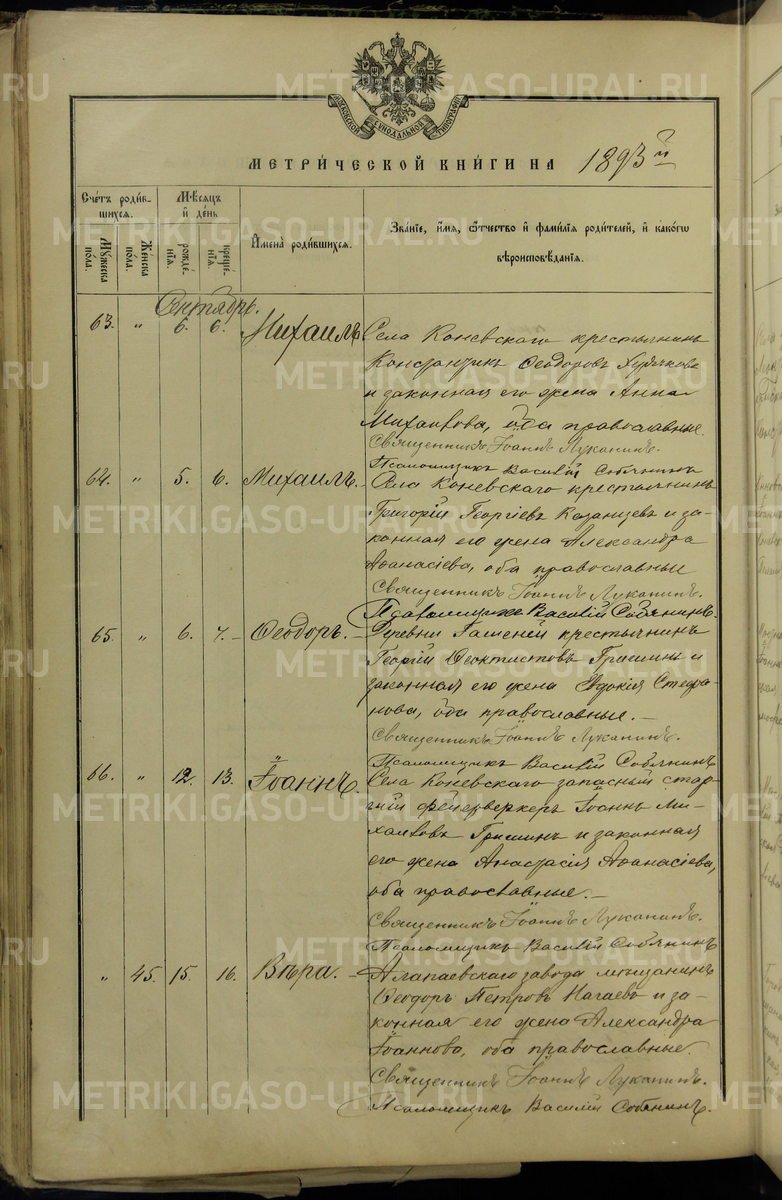 МОСКОВСКОЙ СѴНОДАЛЬНОЙ ТИПОГРАФІИ
МЕТРИ́ЧЕСКОЙ КНИ́ГИ НА 1893 й
Сче́тъ роди́вшихся.
Мѣсяцъ и де́нь
Мꙋжеска по́ла.
Женска по́ла.
рожде́нїѧ.
креще́нїѧ.
Имена̀ роди́вшихся.
Зва́нїе, и́мя, ѻ҆́тчество и҆ фами́лїѧ роди́телей, и҆ како́гѡ
вѣроисповѣ́данїѧ.
Сентябрь.
63. " 6. 6. Михаилъ Села Коневскаго крестьянинъ
Константинъ Ѳеодоровъ
и законная его жена Анна
Михайлова, оба православные.
Священникъ Іоаннъ Луканинъ.
Псаломщикъ Василій Собянинъ
64. " 5. 6. Михаилъ. Села Коневскаго крестьянинъ
Григорій Георгіевъ Казанцевъ и за-
конная его жена Александра
Аѳанасіева, оба православные
Священникъ Іоаннъ Луканинъ.
Псаломщикъ Василій Собянинъ.
65. " 6. 7. Ѳеодоръ. Деревни крестьянинъ
Георгій Ѳеоктистовъ Гришинъ и
законная его жена Евдокія Стефа-
нова, оба православные.
Священникъ Іоаннъ Луканинъ.
Псаломщикъ Василій Собянинъ
66. " 12. 13. Іоаннъ. Села Коневскаго запасный стар-
шій фейерверкеръ Іоаннъ Ми-
хаиловъ Гришинъ и законная
его жена Анастасія Аѳанасіева,
оба православные.
Священникъ Іоаннъ Луканинъ.
Псаломщикъ Василій Собянинъ
" 45. 15. 16. Вѣра. Алапаевскаго завода мѣщанинъ
Ѳеодоръ Петровъ Нагаевъ и за-
конная его жена Александра
Іоаннова, оба православные.
Священникъ Іоаннъ Луканинъ.
Псаломщикъ Василій Собянинъ.
METRIKI.GASO-URAL.RU